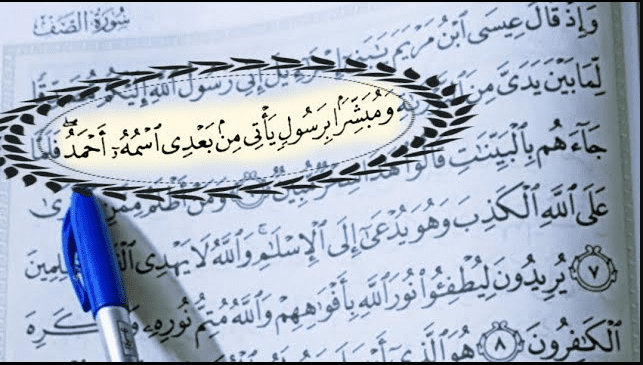 سُورَةُ الصَّفِّ
وَإِذْ قَالَ عِيسَى ٱبْنُ مَرْيَمَ يَٰبَنِىٓ إِسْرَٰٓءِيلَ إِنِّى رَسُولُ ٱللَّهِ إِلَيْكُم
لِّمَا بَيْنَ يَدَىَّ مِنَ
وَمُبَشِّرًۢا بِرَسُولٍ يَأْتِى مِنۢ بَعْدِى ٱسْمُهُۥٓ أَحْمَدُ ۖ فَلَمَّا
جَآءَهُم بِٱلْبَيِّنَٰتِ قَالُوا۟ هَٰذَا سِحْرٌ مُّبِينٌ وَمَنْ أَظْلَمُ مِمَّنِ
عَلَى ٱللَّهِ ٱلْكَذِبَ وَهُوَ يُدْعَىٰٓ إِلَى ٱلْإِسْلَٰمِ ۚ وَٱللَّهُ لَا يَهْدِى ٱلْقَوْمَ ٱلظَّٰلِمِينَ
٧ يُرِيدُونَ لِيُطْفِـُٔوا۟ نُورَ ٱللَّهِ بِأَفْوَٰهِهِمْ وَٱللَّهُ مُتِمُّ نُورِهِۦ وَلَوْ كَرِهَ
ٱلْكَٰفِرُونَ ٨ هُوَ ٱلَّذِىٓ أَرْسَلَ